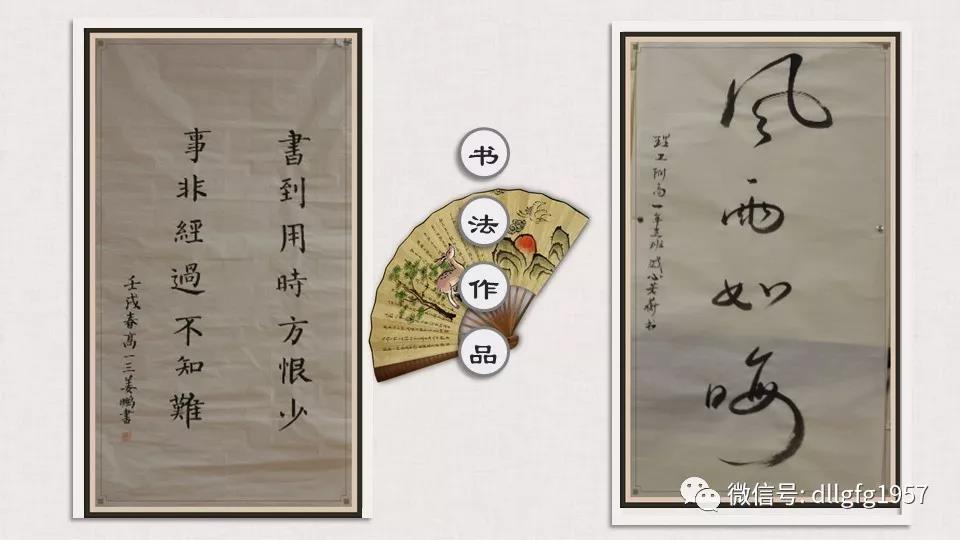 書到用時方恨少
事非經過不知難
壬戌春高一三姜鵬書
书法作品
風雨如晦
微信号: dllgfg1957